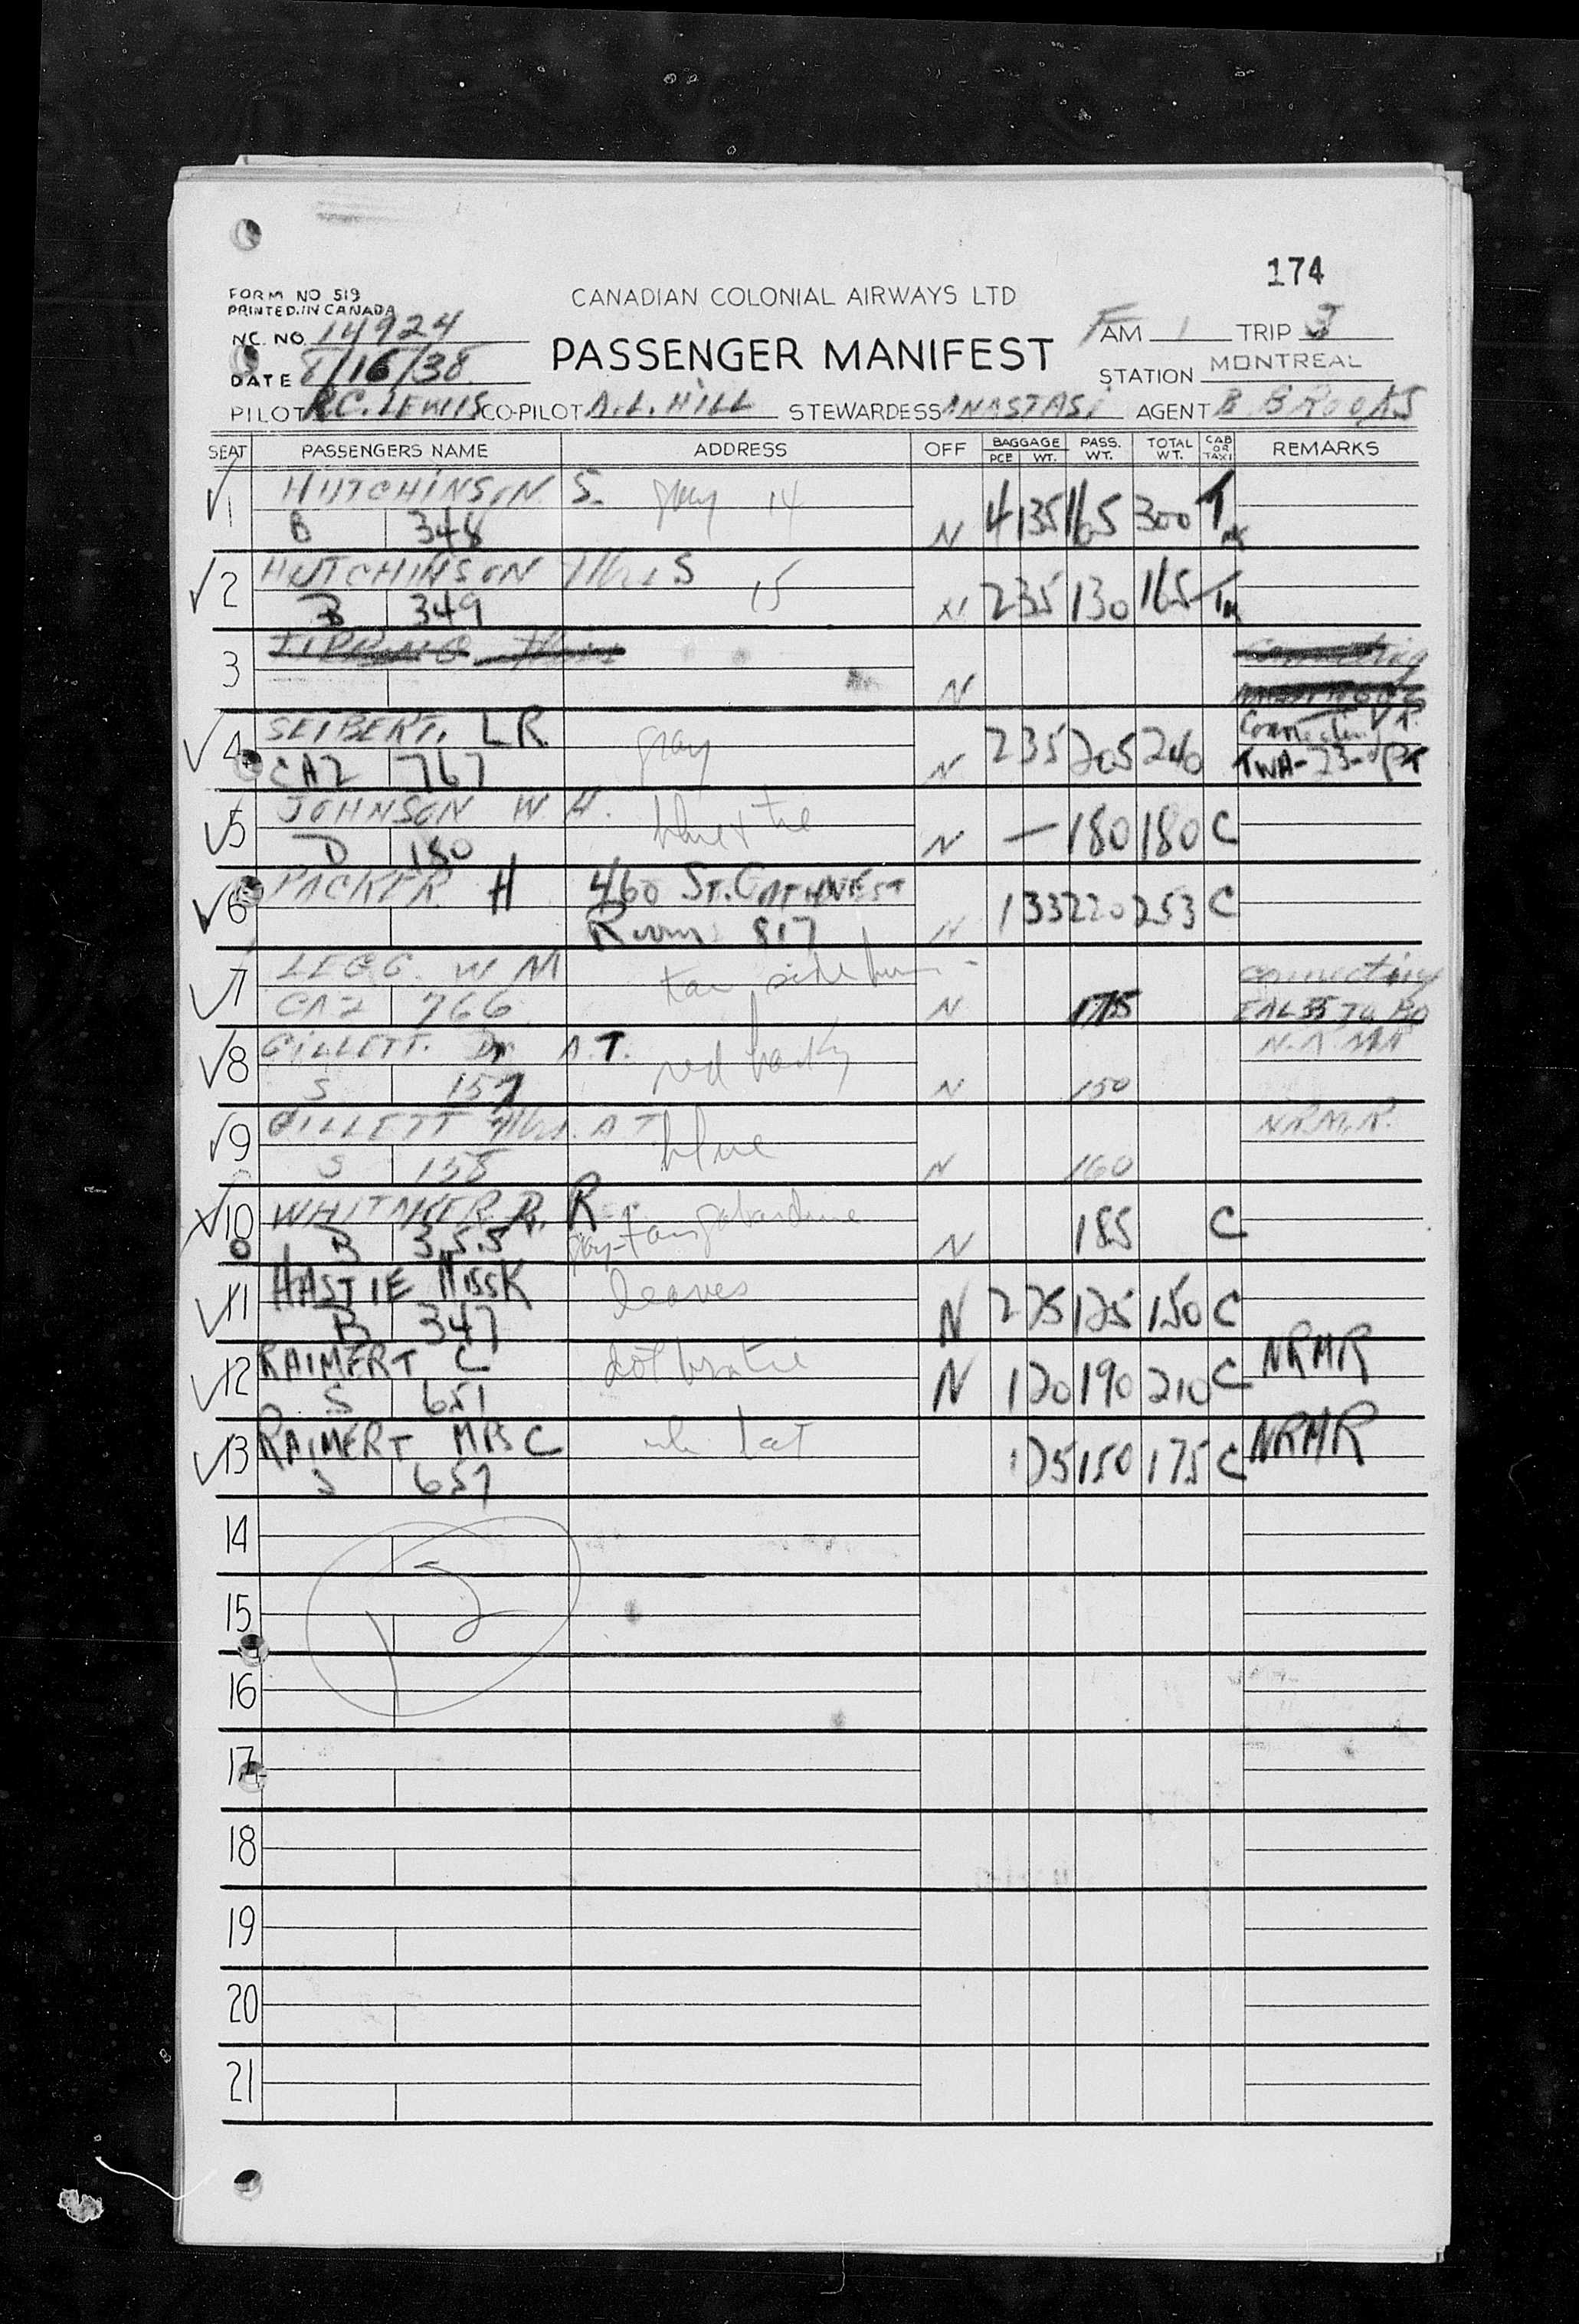 174
FORM NO 519
PRINTED IN CANADA
CANADIAN COLONIAL AIRWAYS LTD
NC. NO. 14924
PASSENGER MANIFEST
FAM 1 TRIP 3
DATE 8/16/38
STATION MONTREAL
PILOT R.C. LEWIS CO-PILOT A.L. HILL STEWARDESS ANASTASI AGENT B BROOKS
SEAT PASSENGERS NAME ADDRESS OFF BAGGAGE PCE WT. PASS. WT. TOTAL WT. CAB OR TAXI REMARKS
1 HUTCHINSON S. gray 14
B 348 N 4 135 165 300 T
2 HUTCHINSON Mrs S 15
B 349 N 2 35 130 165
3
N
4 SEIBERT, L R gray Connecting
CA2 767 N 2 35 205 240 TWA-23-
5 JOHNSON W H. blue tie
D 180 N — 180 180 C
6 PACKER H 460 ST. CATH WEST
Room 817 N 1 33 220 253 C
7 LEGG W M tan connecting
CA2 766 N 175 EAL
8 GILLETT. Dr A.T. red
S 157 N 150
9 GILLETT Mrs. A T blue N.R.M.R.
S 158 N 160
10 WHITAKER R. R
B 355 gray-tan gabardine N 185 C
11 HASTIE MISS K leaves
B 347 N 2 25 125 150 C
12 RAIMERT C dot NRMR
S 651 N 1 20 190 210 C
13 RAIMERT MRS C NRMR
S 651 1 25 150 175 C
14
15
16
17
18
19
20
21